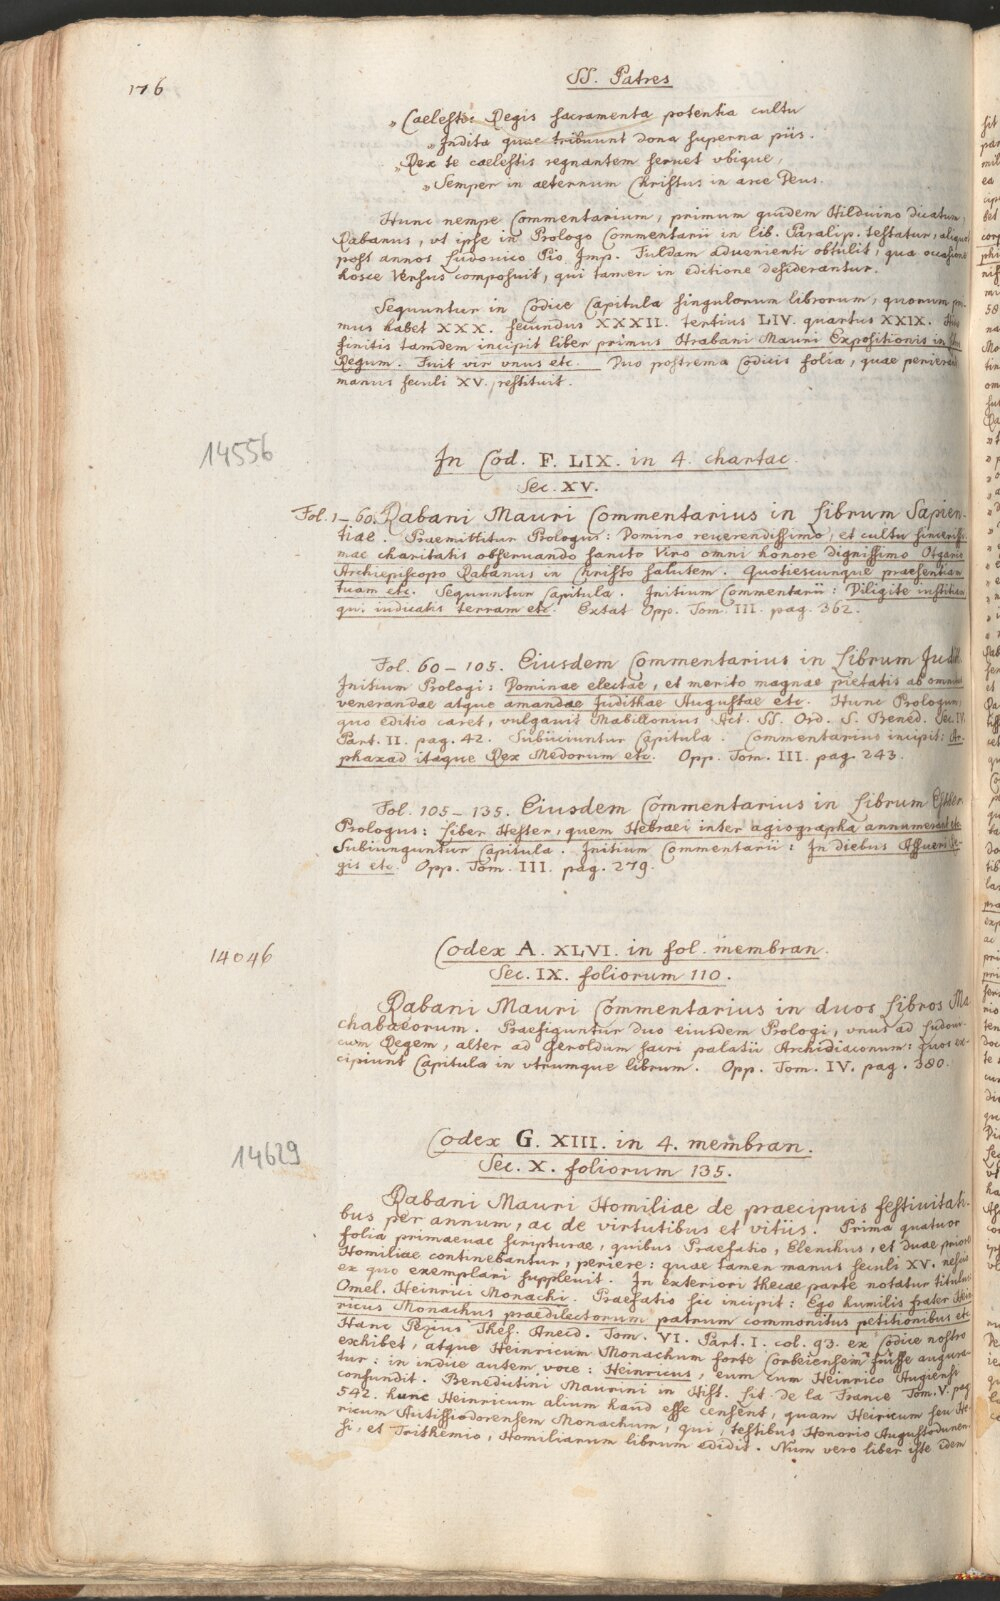 176
SS. Patres
„ Caelestis Regis sacramenta potentia cultu
„ Indita quae tribuunt dona superna piis.
„ Rex te caelestis regnantem seruet vbique,
„ Semper in aeternum Christus in arce Deus.
Hunc nempe Commentarium, primum quidem Hilduino dicatum,
Rabanus, vt ipse in Prologo Commentarii in lib. Paralip. testatur, aliquot
post annos Ludouico Pio Imp. Fuldam aduenienti obtulit, qua occasione
hosce Versus composuit, qui tamen in editione desiderantur.
Sequuntur in Codice Capitula singulorum librorum, quorum pri-
mus habet XXX. secundus XXXII. tertius LIV. quartus XXIX. His
finitis tamdem incipit liber primus Hrabani Mauri Expositionis in libr.
Regum. Fuit vir vnus etc. Duo postrema Codicis folia, quae perierant
manus seculi XV. restituit.
14556
In Cod. F. LIX. in 4. chartac.
Sec. XV.
Fol. 1–60. Rabani Mauri Commentarius in Librum Sapien-
tiae. Praemittitur Prologus: Domino reuerendissimo, et cultu sinceriss-
mae charitatis obseruando sancto Viro omni honore dignissimo Otgario
Archiepiscopo Rabanus in Christo salutem. Quotiescunque praesentiam
tuam etc. Sequuntur Capitula. Initium Commentarii: Diligite iustitiam
qui iudicatis terram etc. Extat Opp. Tom. III. pag. 362.
Fol. 60–105. Eiusdem Commentarius in Librum Judith.
Initium Prologi: Dominae electae, et merito magnae pietatis ab omnibus
venerandae atque amandae Judithae Augustae etc. Hunc Prologum,
quo editio caret, vulgauit Mabillonius Act. SS. Ord. S. Bened. Sec. IV.
Part. II. pag. 42. Subiiciuntur Capitula. Commentarius incipit: Ar-
phaxad itaque Rex Medorum etc. Opp. Tom. III. pag. 243.
Fol. 105–135. Eiusdem Commentarius in Librum Esther.
Prologus: Liber Hester, quem Hebraei inter agiographa annumerant etc.
Subiunguntur Capitula. Initium Commentarii: In diebus Assueri Re-
gis etc. Opp. Tom. III. pag. 279.
14046
Codex A. XLVI. in fol. membran.
Sec. IX. foliorum 110.
Rabani Mauri Commentarius in duos Libros Ma
chabaeorum. Praefiguntur duo eiusdem Prologi, vnus ad Ludoui-
cum Regem, alter ad Geroldum sacri palatii Archidiaconum: quos ex-
cipiunt Capitula in vtrumque librum. Opp. Tom. IV. pag. 380.
14629
Codex G. XIII. in 4. membran.
Sec. X. foliorum 135.
Rabani Mauri Homiliae de praecipuis festiuitati-
bus per annum, ac de virtutibus et vitiis. Prima quatuor
folia primaeuae scripturae, quibus Praefatio, Elenchus, et duae priores
Homiliae continebantur, periere: quae tamen manus seculi XV. nescio
ex quo exemplari suppleuit. In exteriori thecae parte notatur titulus
Omel. Heinrici Monachi. Praefatio sic incipit: Ego humilis frater Hein-
ricus Monachus praedilectorum patrum commonitus petitionibus etc.
Hanc Pezius Thes. Anecd. Tom. VI. Part. I. col. 93. ex Codice nostro
exhibet, atque Heinricum Monachum forte Corbeiensem fuisse augura-
tur: in indice autem voce: Heinricus, eum cum Heinrico Augiensi
confundit. Benedictini Maurini in Hist. Lit. de la France Tom. V. pag
542. hunc Heinricum alium haud esse censent, quam Heiricum seu He-
ricum Autissiodorensem Monachum, qui, testibus Honorio Augustodunen-
si, et Trithemio, Homiliarum librum edidit. Num vero liber iste idem